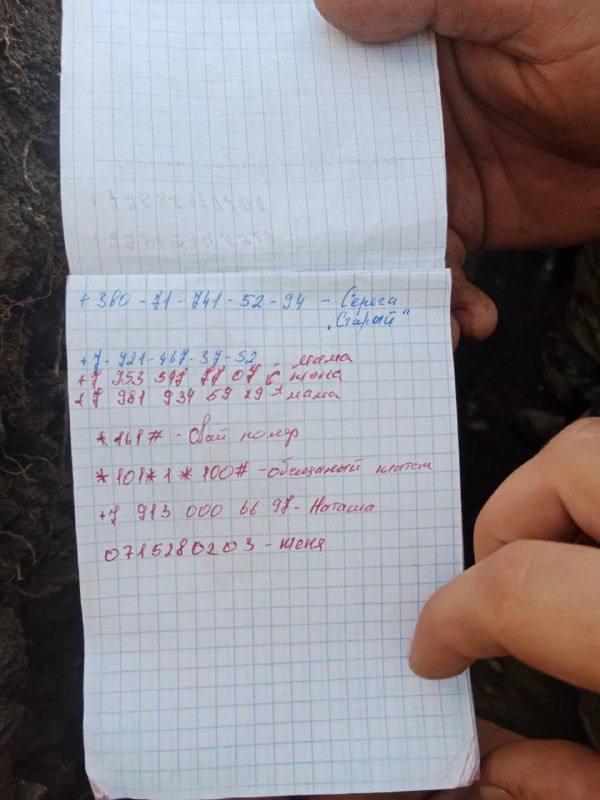 +380-71-741-52-94 - Серега
„Старый"
+7-921-467-37-52 - мама
+7 953 597 77 07 жена
+7 981 934 59 29 мама
*161# - Свой номер
*101*1*100# - обещаный платеж
+7 913 000 66 97 - Наташа
0715280203 - Женя